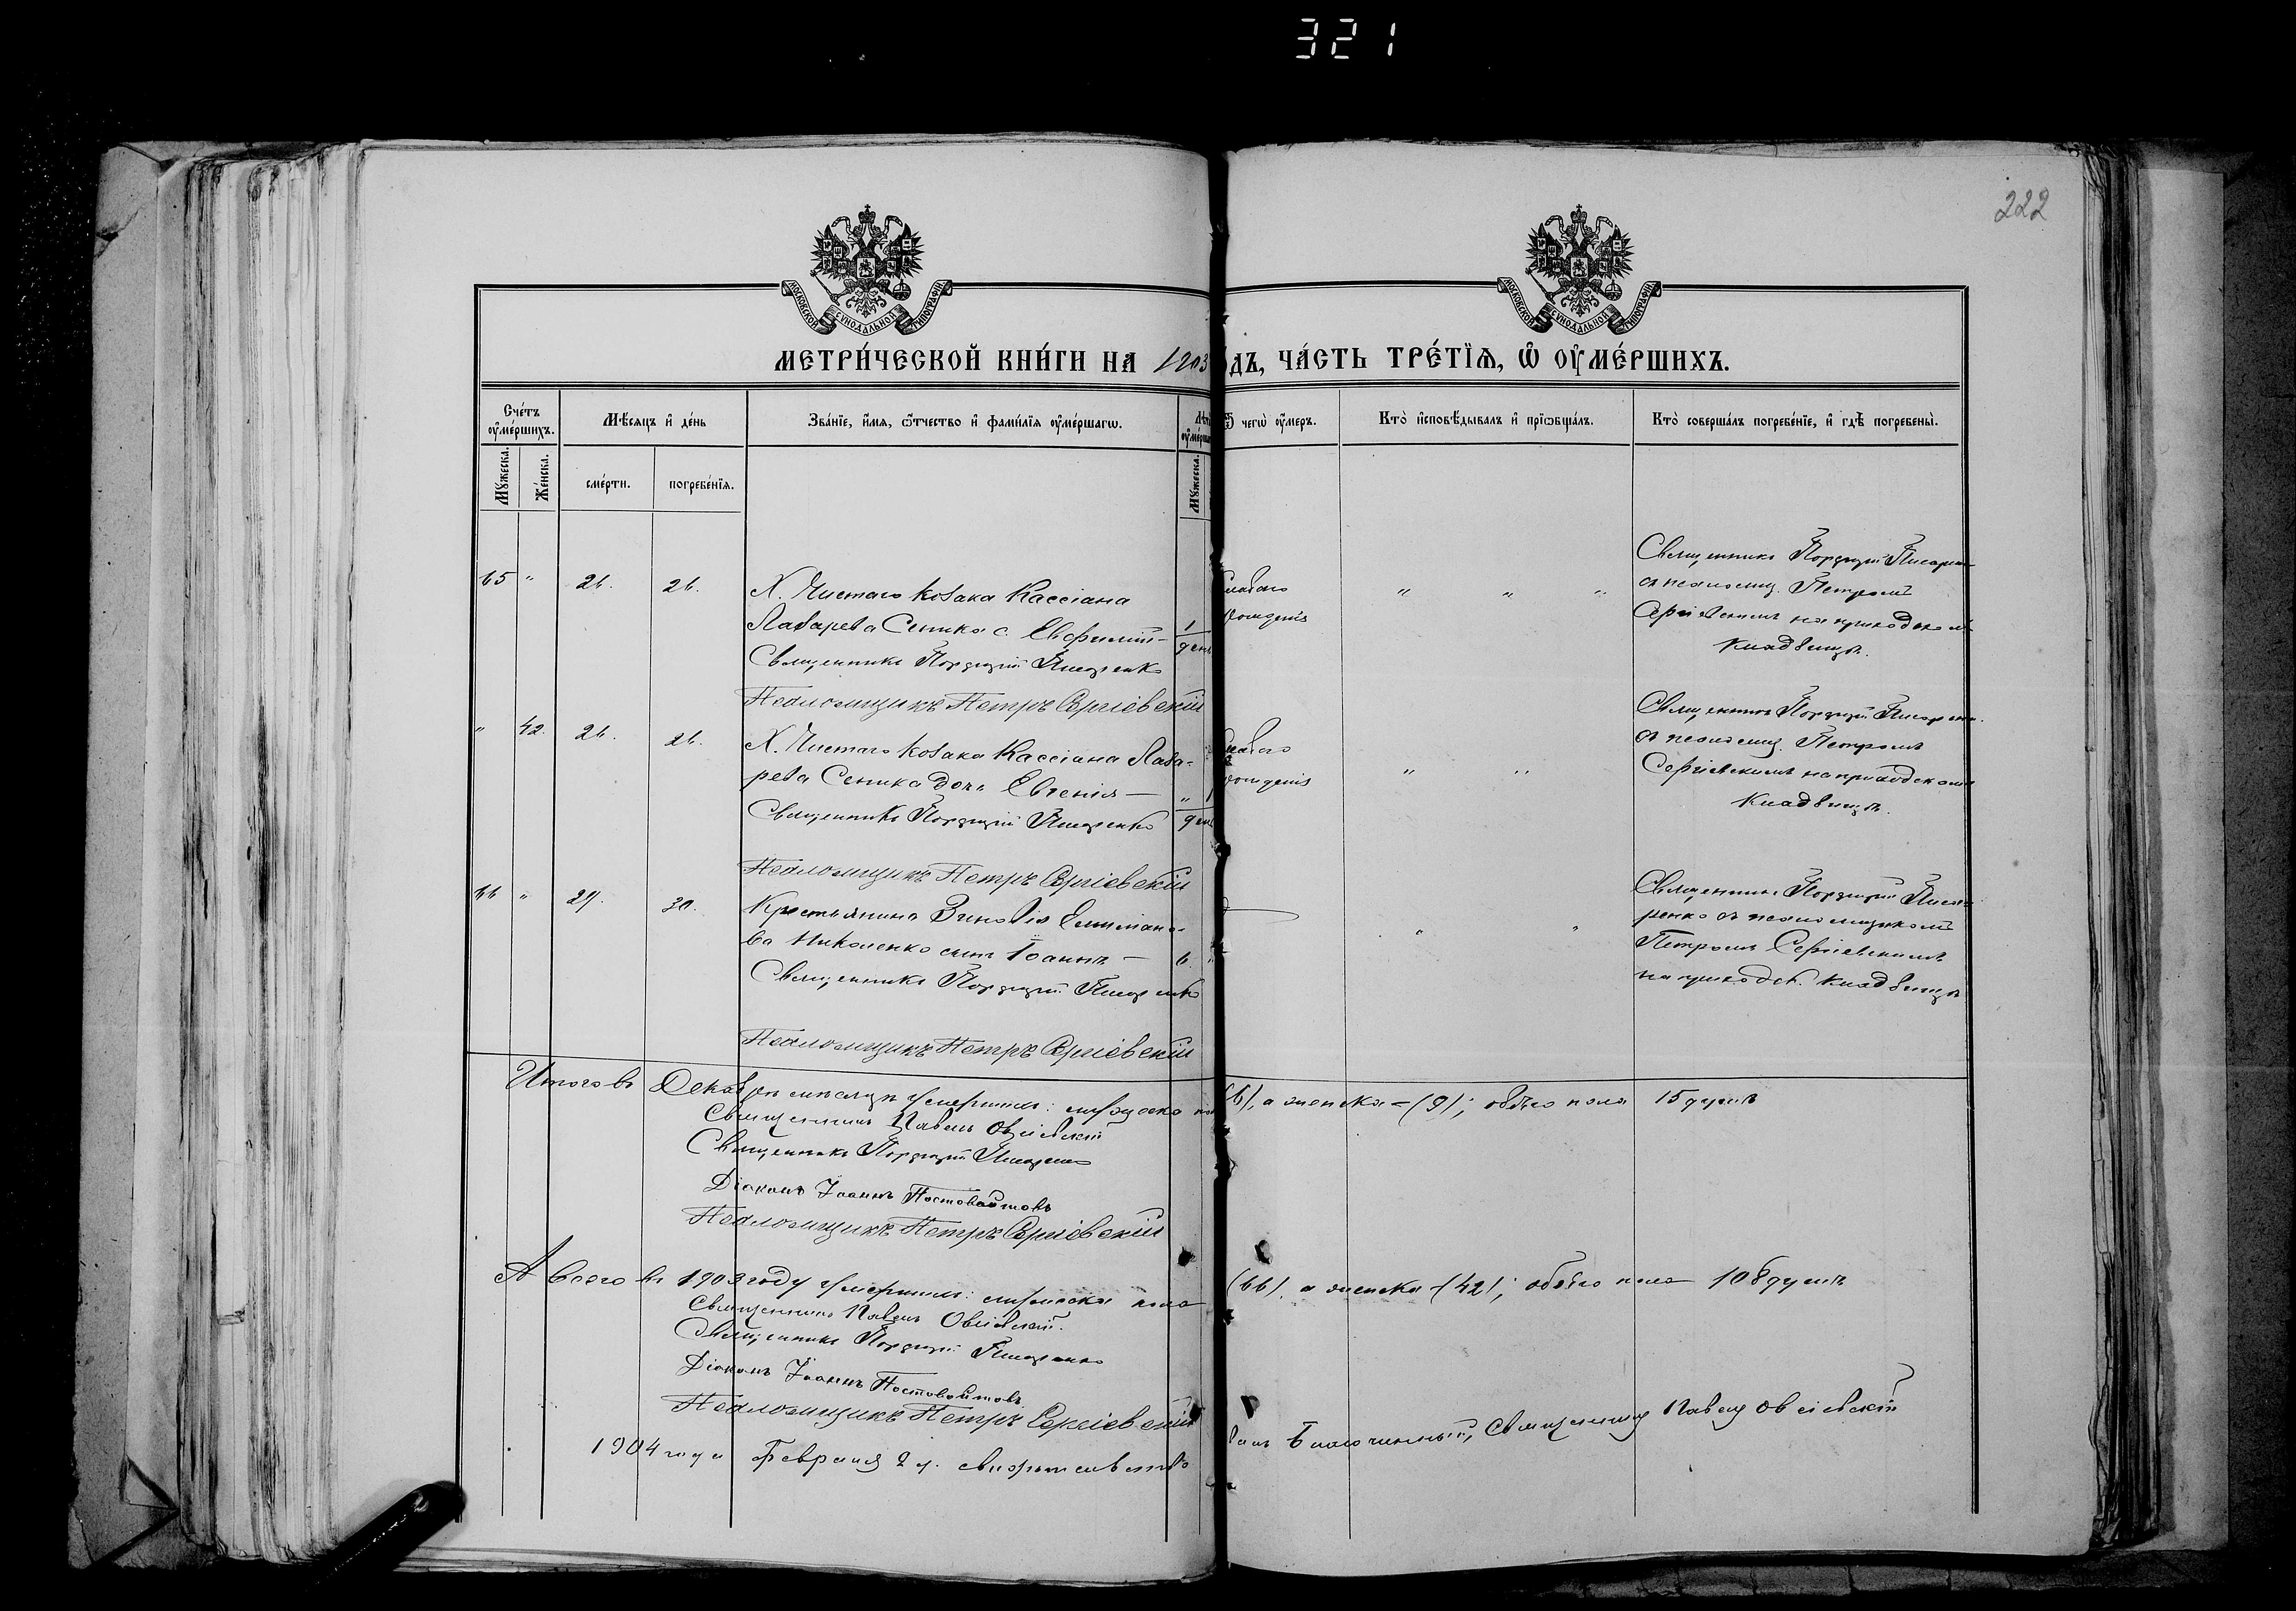 321
222
МОСКОВСКОЙ СѴНОДАЛЬНОЙ ТИПОГРАФІИ
МОСКОВСКОЙ СѴНОДАЛЬНОЙ ТИПОГРАФІИ
МЕТРИ́ЧЕСКОЙ КНИ́ГИ НА 1903
ДЪ, ЧА́СТЬ ТРЕ́ТЇѦ, Ѡ҆ ОУ҆МЕ́РШИХЪ.
Сче́тъ оу҆ме́ршихъ.
Мѣ́сѧцъ и҆ де́нь
Зва́нїе, и҆́мѧ, ѻ҆́тчество и҆ фами́лїѧ оу҆ме́ршагѡ.
Ѿ чегѡ̀ оу҆́меръ.
Кто̀ и҆сповѣ́дывалъ и҆ прїѡбща́лъ.
Кто̀ соверша́лъ погребе́нїе, и҆ гдѣ̀ погребены̀.
Мꙋ́жеска.
Же́нска.
сме́рти.
погребе́нїѧ.
Мꙋ́жеска.
65 " 26. 26.
Х. Чистаго козака Кассіана
Лазарева Сеника с. Евфимій –
Священникъ Порфирій Писаренко
Псаломщикъ Петръ Сергіевскій
1 день
слабаго
рожденія
" " "
Священникъ Порфирій Писарен-
съ псаломщ. Петромъ
Сергіевскимъ на приходском
кладбищѣ.
" 42. 26. 26.
Х. Чистаго козака Кассіана Лаза-
рева Сеника дочь Евгенія –
Священникъ Порфирій Писаренко
Псаломщикъ Петръ Сергіевскій
" 1 день
слабаго
рожденія
" "
Священникъ Порфирій Писаренк.
съ псаломщ. Петромъ
Сергіевскимъ на приходском
кладбищѣ.
66 " 29. 30.
Крестьянина Зиновія Емиліано-
ва Николенко сынъ Іоаннъ – 6.
Священникъ Порфирій Писаренко
Псаломщикъ Петръ Сергіевскій
" "
Священникъ Порфирій Писа-
ренко съ псаломщикомъ
Петромъ Сергіевскимъ
на приходск. кладбищѣ
Итого въ Декабрѣ мѣсяцѣ умершихъ: мужеска пол (6), а женска – (9); обоего пола 15 душъ
Священникъ Павелъ
Священникъ Порфирій Писаренко
Діаконъ Іоаннъ Постовойтовъ
Псаломщикъ Петръ Сергіевскій
А всего въ 1903 году умершихъ: мужеска пола (66), а женска – (42); обоего пола 108 душъ
Священникъ Павелъ
Священникъ Порфирій Писаренко
Діаконъ Іоаннъ Постовойтовъ
Псаломщикъ Петръ Сергіевскій
1904 года Февраля 2 д. свидѣтельство
валъ Благочинный, Священникъ Павелъ